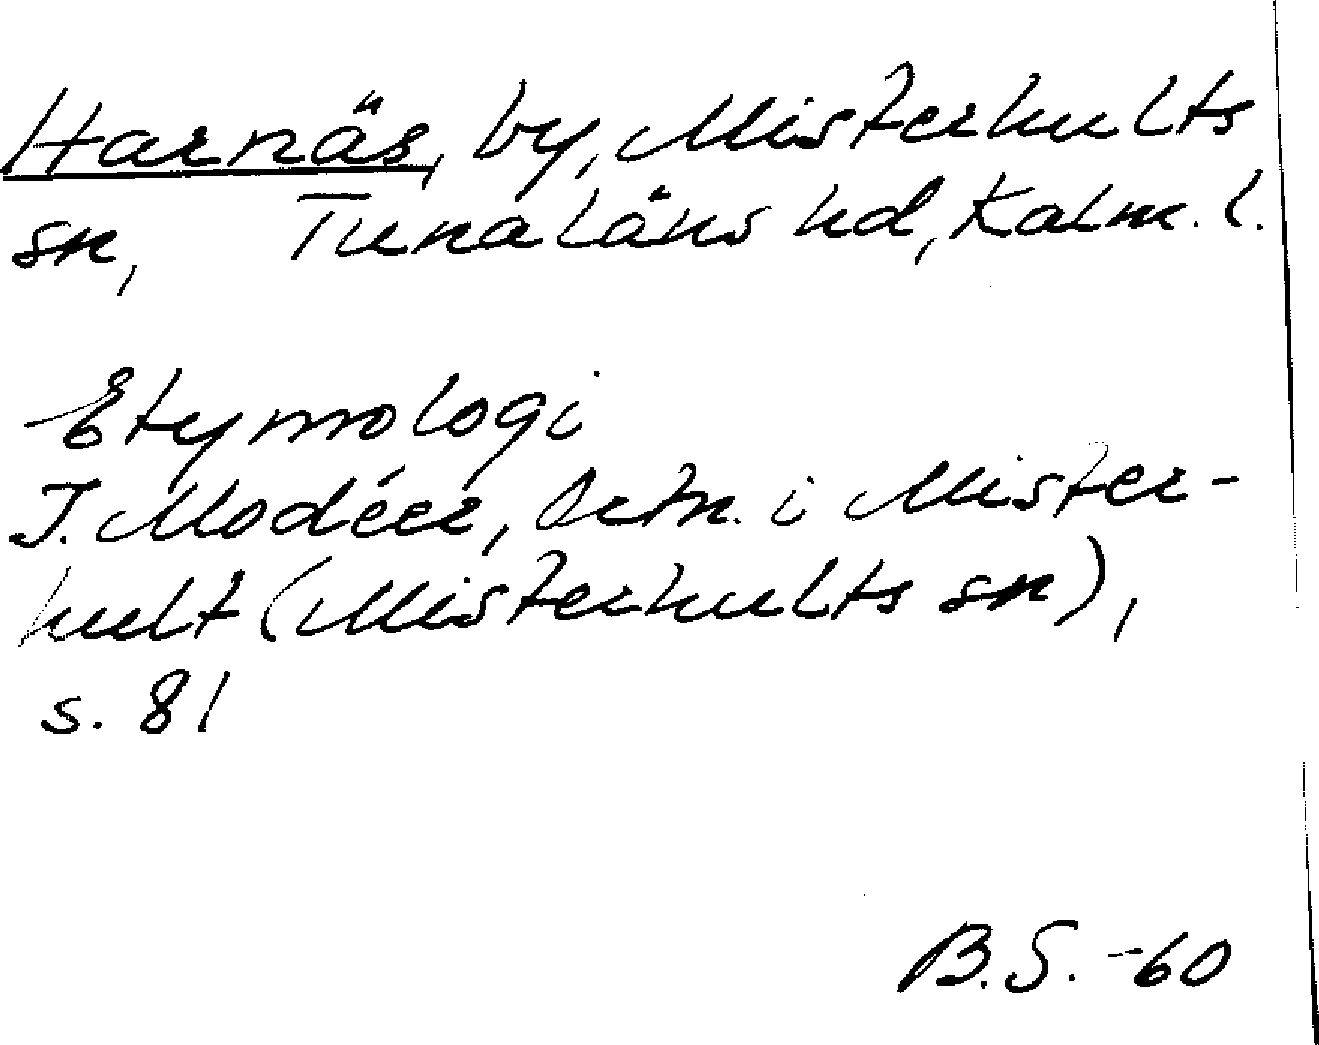 Harnäs, by, Misterhults
sn, Tunaläns hd, Kalm. l.
Etymologi
I. Modéer, Ortn. i Mister-
hult (Misterhults sn),
s. 81
B.S. -60